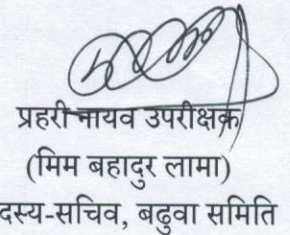 प्रहरी नायव उपरीक्षक
(मिम बहादुर लामा)
दस्य-सचिव, बढुवा समिति